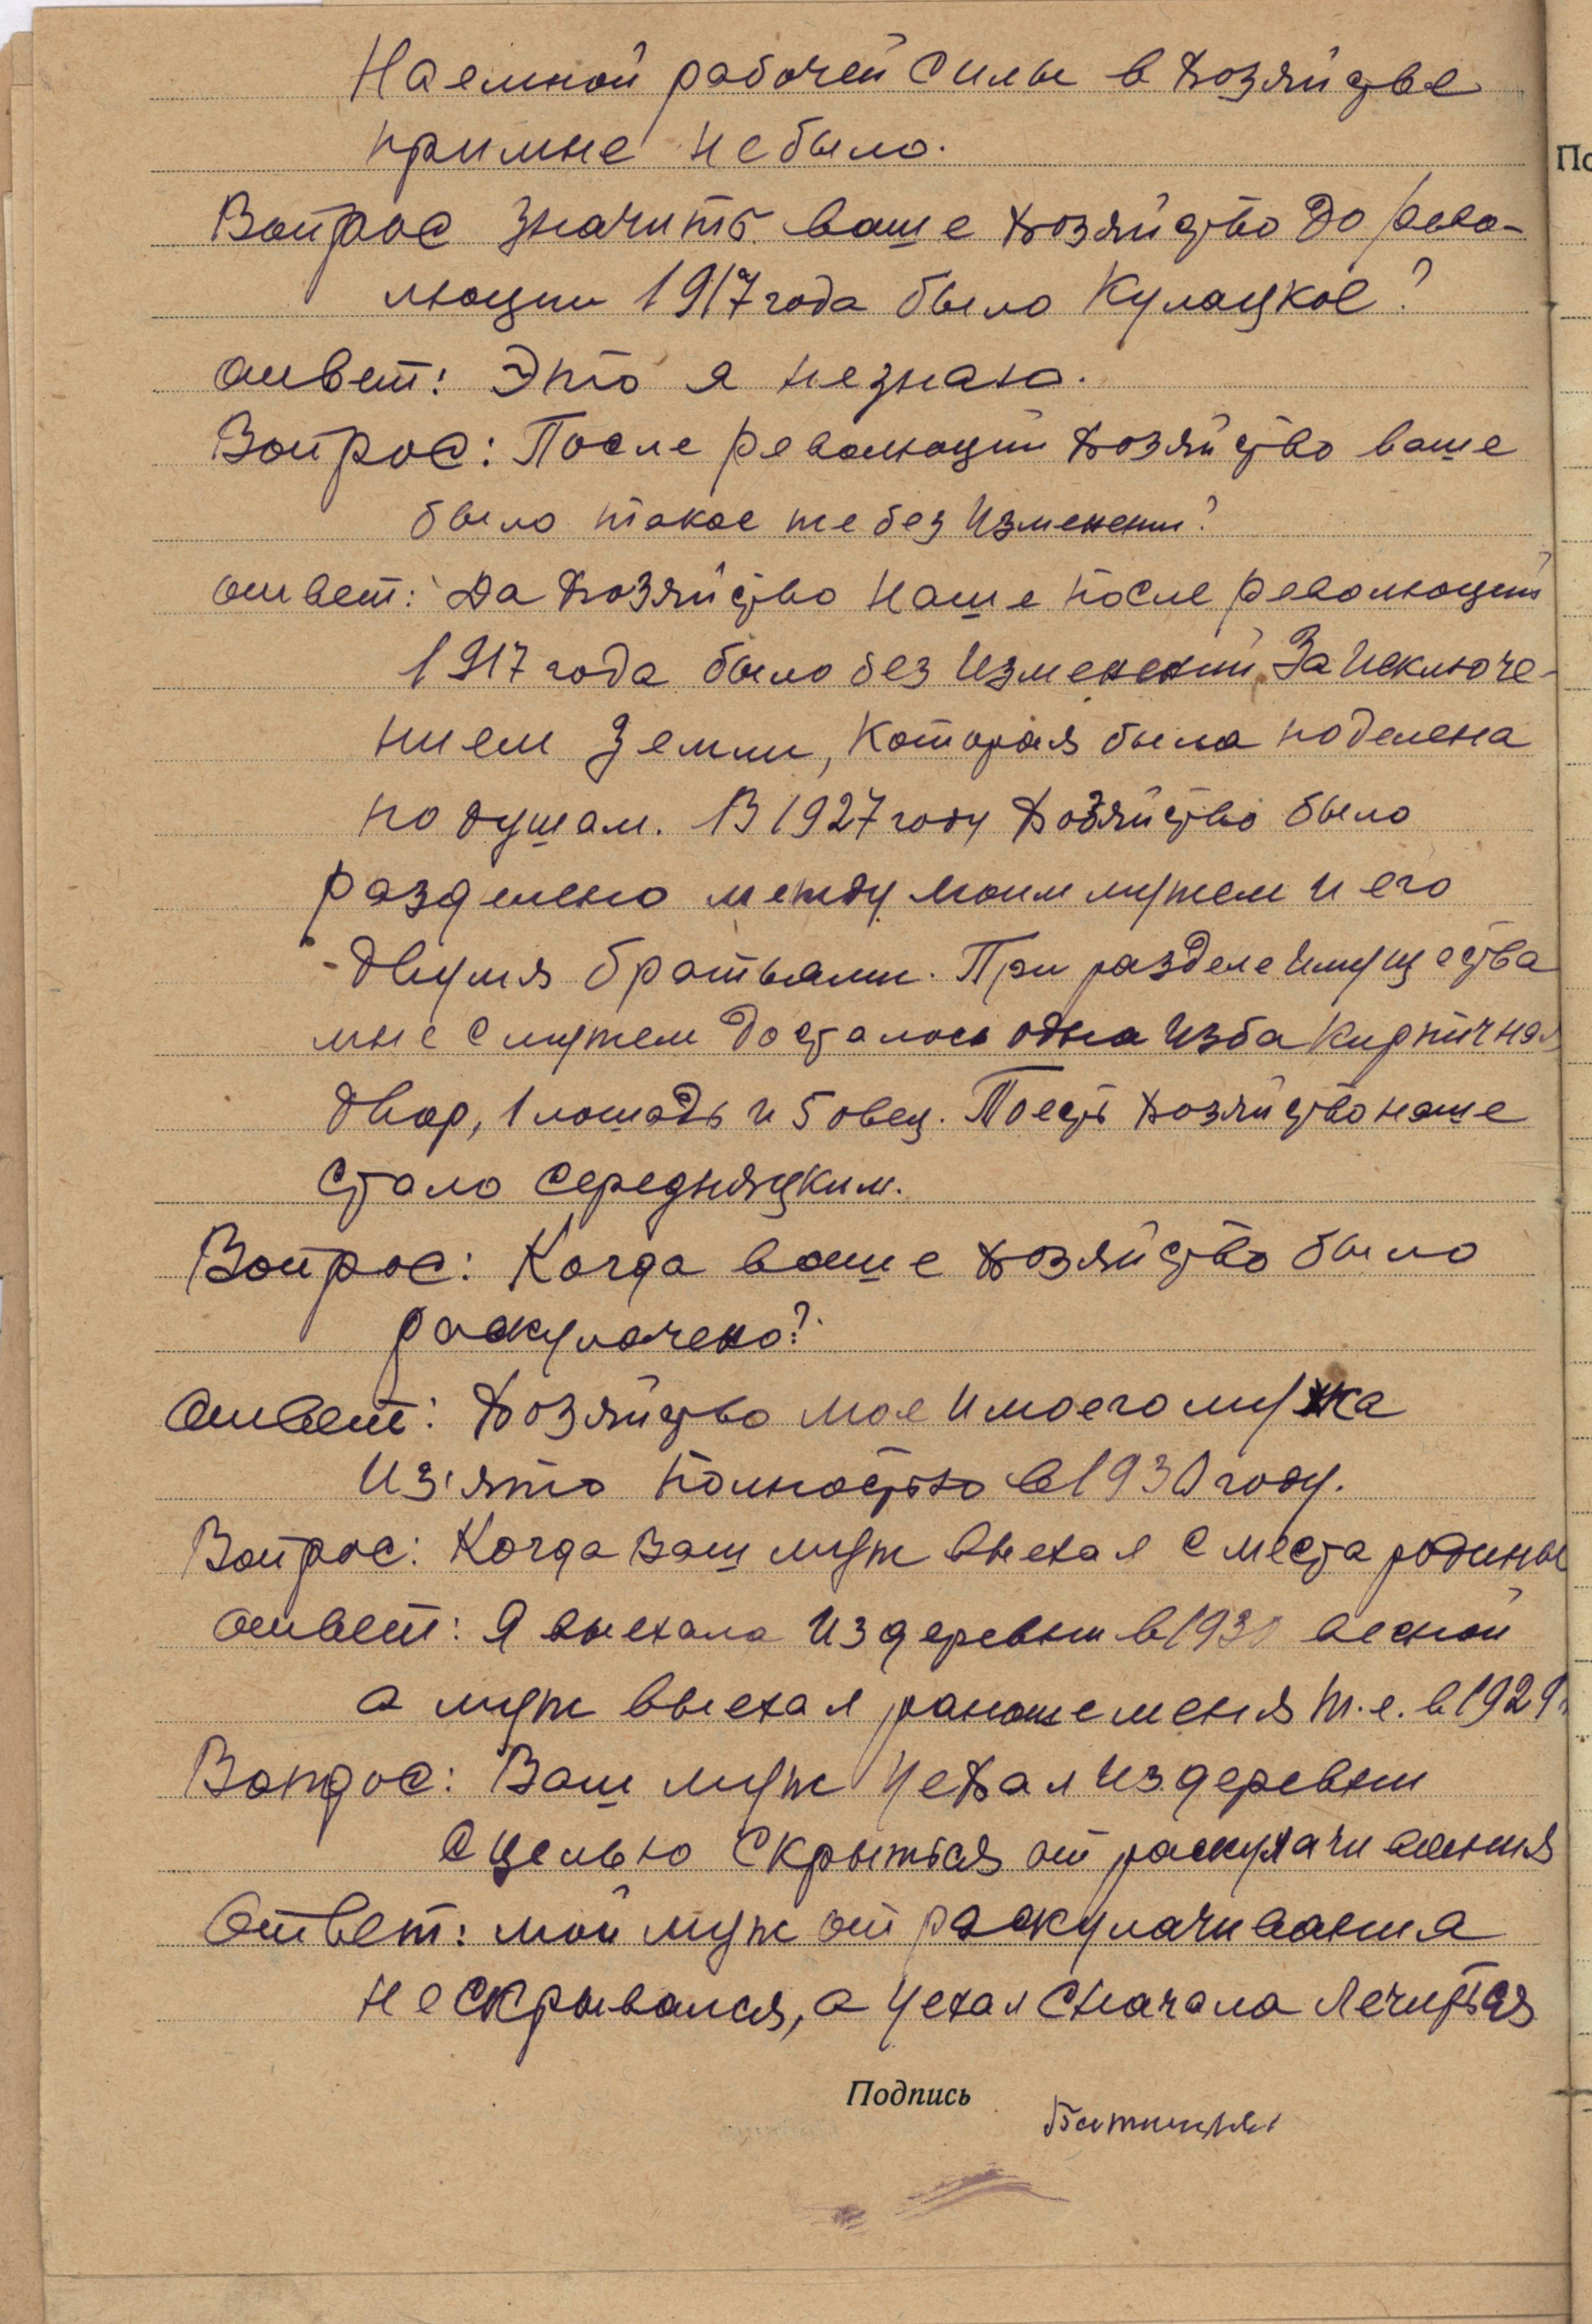 Наемной рабочей силы в хозяйстве
при мне не было.
Вопрос значить ваше хозяйство до рево-
люции 1917 года было кулацкое?
ответ: Это я не знаю.
Вопрос: После революции хозяйство ваше
было такое же без изменений?
ответ: Да хозяйство наше после революций
1917 года было без изменений, За исключе-
нием земли, которая была поделена
по душам. В 1927 году хозяйство было
разделено между моим мужем и его
двумя братьями. При разделе имущества
мне с мужем досталось одна изба кирпичная
двор, 1 лошадь и 5 овец. То есть хозяйство наше
стало середняцким.
Вопрос: Когда ваше хозяйство было
раскулачено?
Ответ: Хозяйство мое и моего мужа
из'ято полностью в 1930 году.
Вопрос: Когда Ваш муж выехал с места родины
ответ: Я выехала из деревни в 1930 весной
а муж выехал раньше меня т.е. в 1929г
Вопрос: Ваш муж уехал из деревни
с целью скрыться от раскулачивания
Ответ: мой муж от раскулачивания
не скрывался, а уехал сначала лечиться
Подпись
По